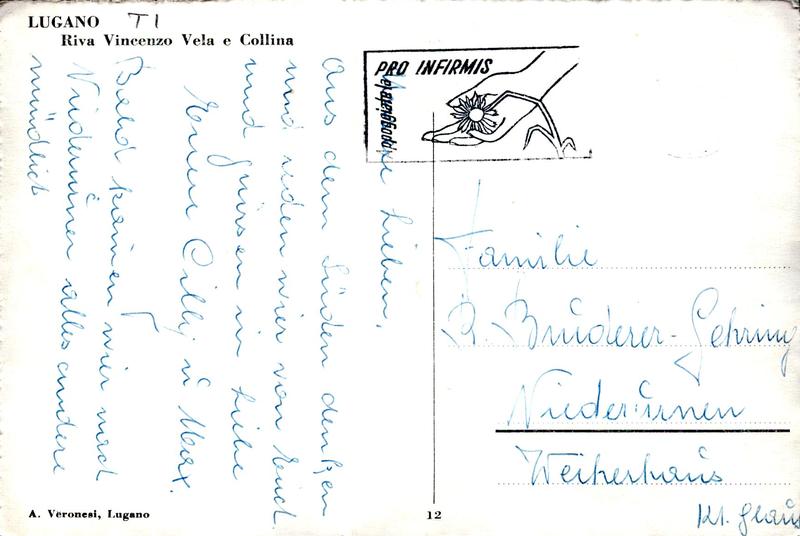 LUGANO TI
Riva Vincenzo Vela e Collina
PRO INFIRMIS
Lieben,
Aus dem Süden denken
und reden wier von Euch
und grüssen in Liebe
Eure Cilly u Max.
Bald kommen wier nach
Niederurnen alles andere
mündlich
Familie
R. Bruderer-Gehring
Niederurnen
Weiherhaus
Kt. Glarus
A. Veronesi, Lugano
12